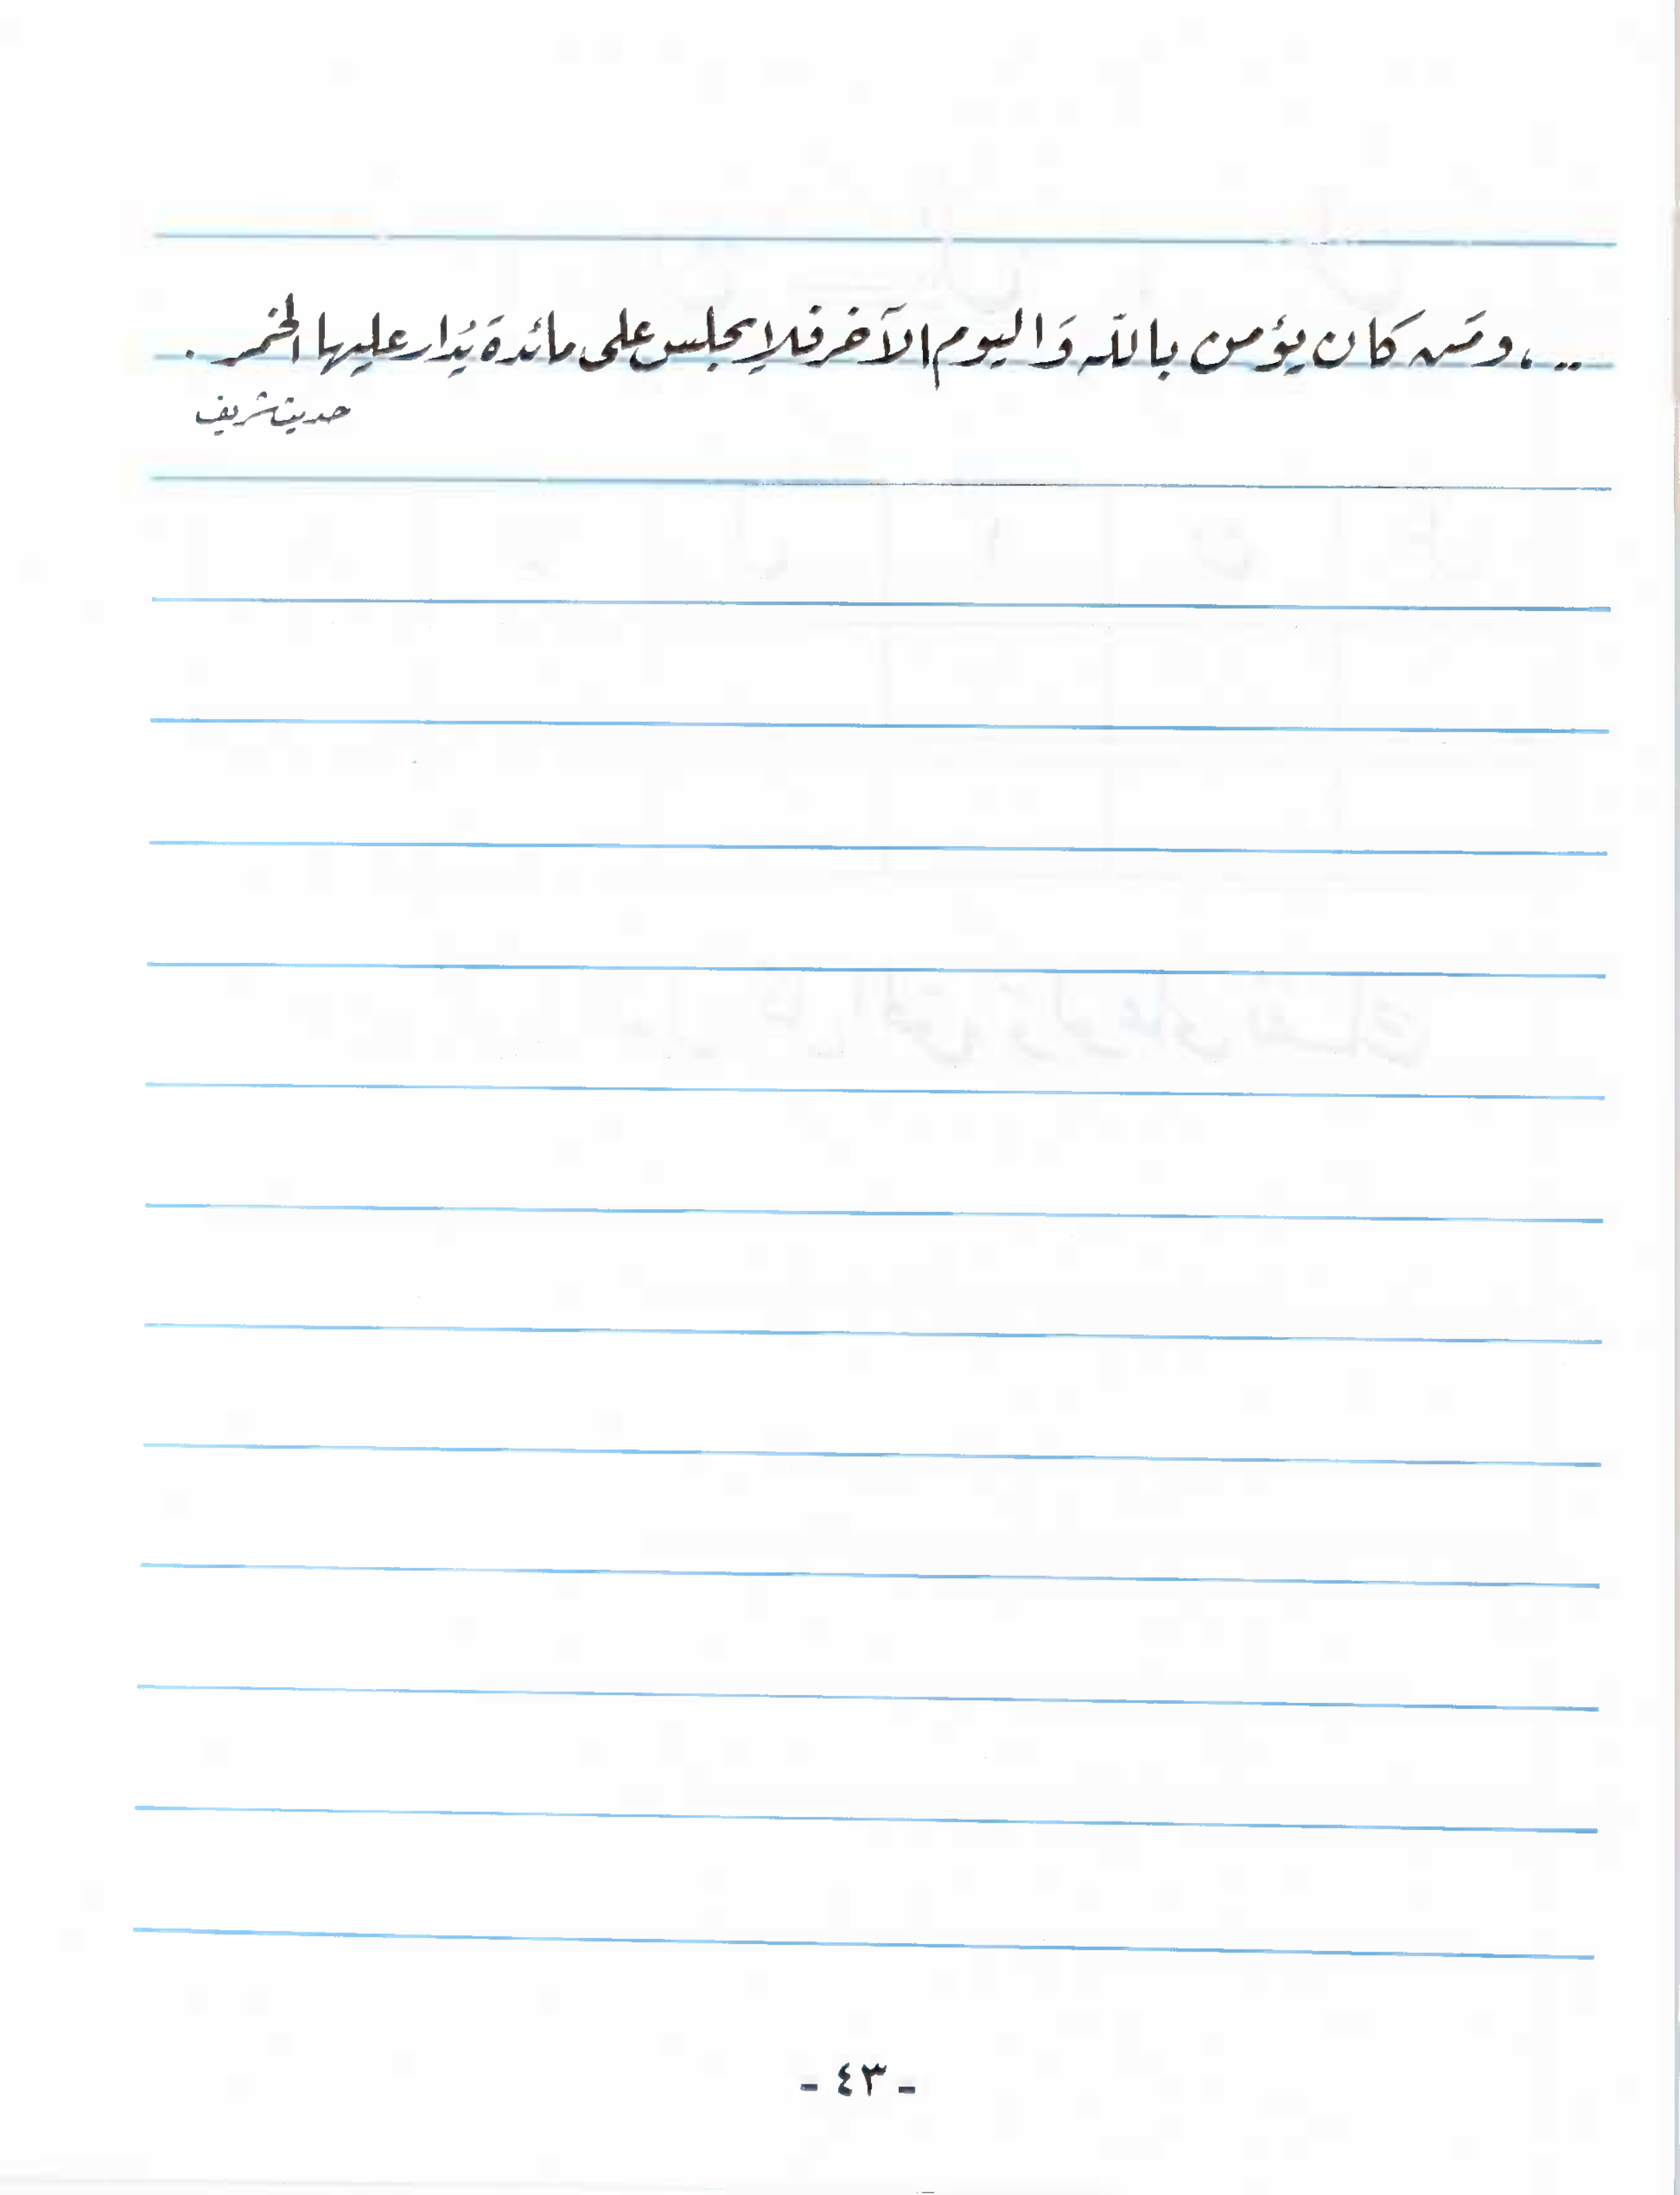 .. ، ومَن كَان يؤمن باللّه وَاليوم الآخر فلا يجلس على مائدة يُدَار عليها الخمر .
حديث شريف
- ٤٣ -